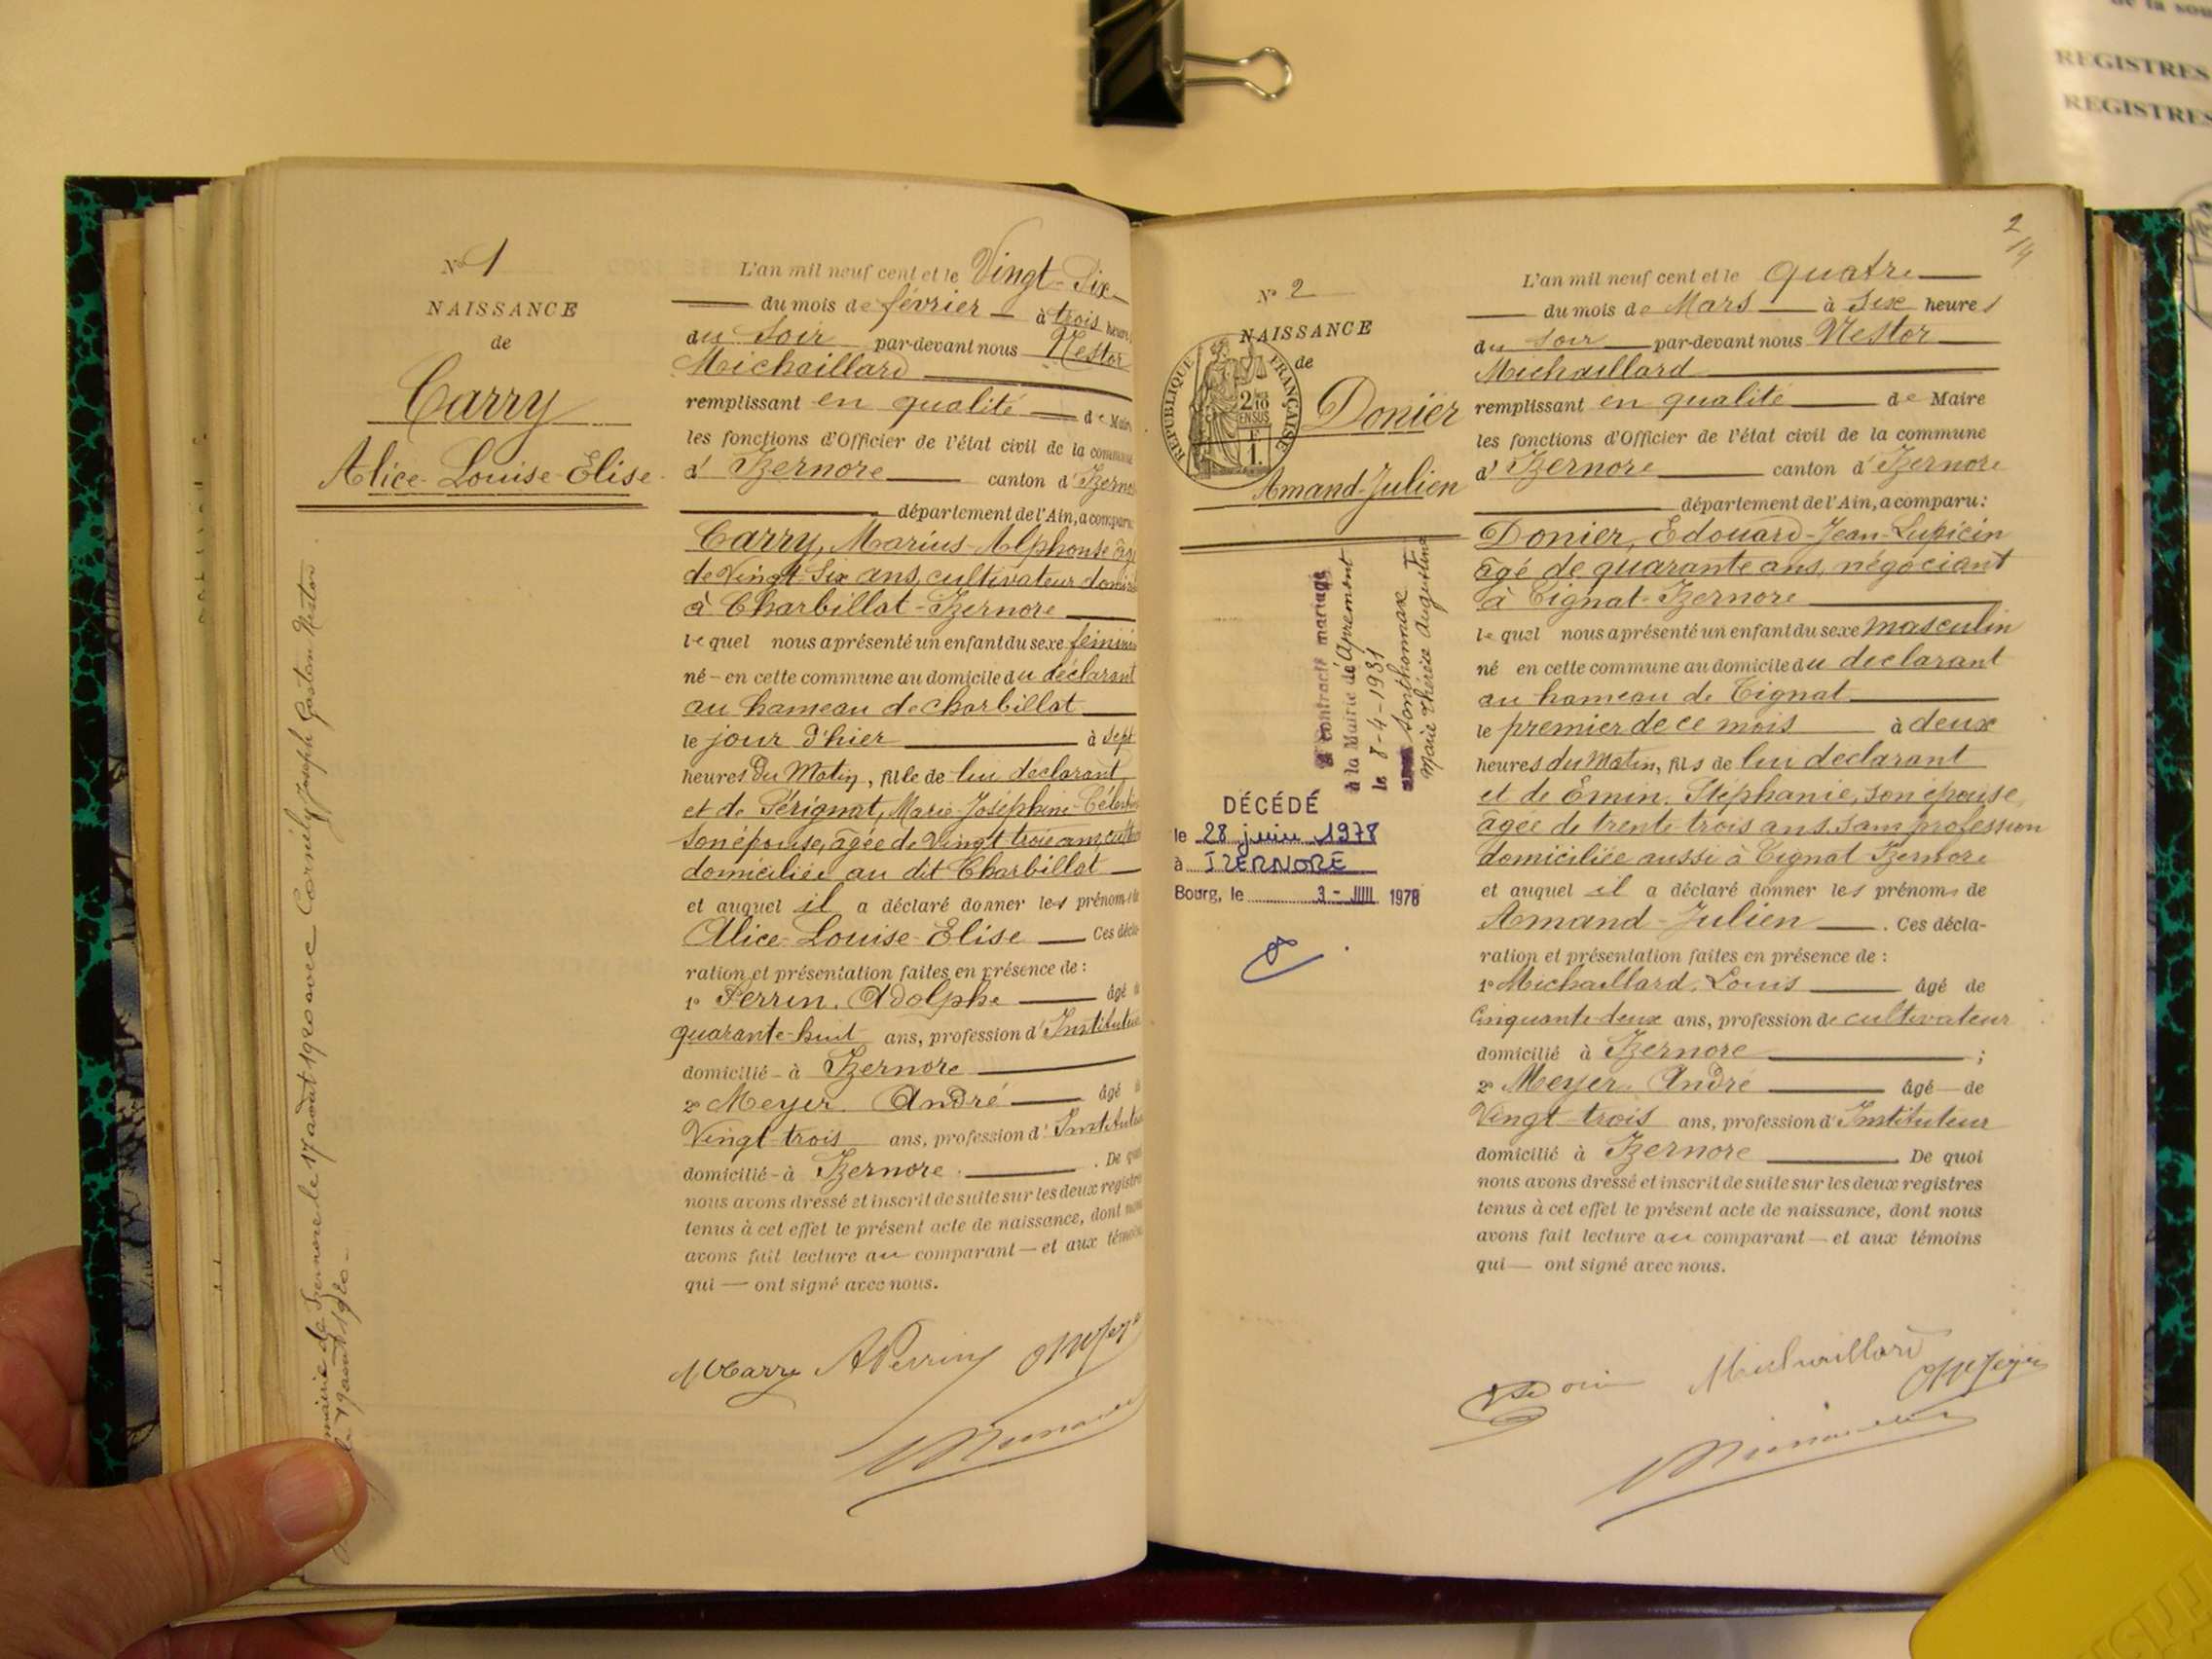 de la sou
REGISTRES
REGISTRES
N° 1
NAISSANCE
de
Carry
Alice-Louise-Elise
Mairie de Izernore le 17 août 1920 avec Cornély Joseph Gaston Nestor
le 19 août 1920
L'an mil neuf cent et le Vingt-Six
du mois de février à trois heures
du Soir par-devant nous Nestor
Michaillard
remplissant en qualité de Maire
les fonctions d'Officier de l'état civil de la commune
d'Izernore canton d'Izernore
département de l'Ain, a comparu
Carry, Marius-Alphonse âgé
de Vingt Six ans, cultivateur domicilié
à Charbillat-Izernore
lequel nous a présenté un enfant du sexe féminin
né en cette commune au domicile du déclarant
au hameau de Charbillat
le jour d'hier à sept
heures du Matin, fille de lui déclarant
et de Pérignat, Marie-Joséphine-Célestine
son épouse, âgée de Vingt trois ans, cult
domiciliée au dit Charbillat
et auquel il a déclaré donner les prénoms de
Alice-Louise-Elise Ces décla-
ration et présentation faites en présence de :
1° Perrin, Adolphe âgé de
quarante-huit ans, profession d'Instituteur
domicilié à Izernore
2° Meyer André âgé de
Vingt-trois ans, profession d'Instituteur
domicilié à Izernore. De quoi
nous avons dressé et inscrit de suite sur les deux registres
tenus à cet effet le présent acte de naissance, dont nous
avons fait lecture au comparant et aux témoins
qui ont signé avec nous.
M Carry A Perrin A Meyer
2
14
N° 2
NAISSANCE
de
RÉPUBLIQUE FRANÇAISE
2/10 EN SUS
F
1.
Donier
Amand-Julien
A contracté mariage
à la Mairie de Apremont
le 8-4-1931
avec Sonthonnax
Marie Thérèse Augustine
DÉCÉDÉ
le 28 juin 1978
à IZERNORE
Bourg, le 3 - JUIL 1978
L'an mil neuf cent et le quatre
du mois de Mars à Six heures
du Soir par-devant nous Nestor
Michaillard
remplissant en qualité de Maire
les fonctions d'Officier de l'état civil de la commune
d'Izernore canton d'Izernore
département de l'Ain, a comparu :
Donier, Edouard-Jean-Lupicin
âgé de quarante ans, négociant
à Tignat-Izernore
lequel nous a présenté un enfant du sexe masculin
né en cette commune au domicile du déclarant
au hameau de Tignat
le premier de ce mois à deux
heures du Matin, fils de lui déclarant
et de Emin, Stéphanie, son épouse
âgée de trente-trois ans, sans profession
domiciliée aussi à Tignat Izernore
et auquel il a déclaré donner les prénoms de
Amand-Julien. Ces décla-
ration et présentation faites en présence de :
1° Michaillard, Louis âgé de
Cinquante deux ans, profession de cultivateur
domicilié à Izernore ;
2° Meyer André âgé de
Vingt-trois ans, profession d'Instituteur
domicilié à Izernore. De quoi
nous avons dressé et inscrit de suite sur les deux registres
tenus à cet effet le présent acte de naissance, dont nous
avons fait lecture au comparant et aux témoins
qui ont signé avec nous.
Michaillard A Meyer